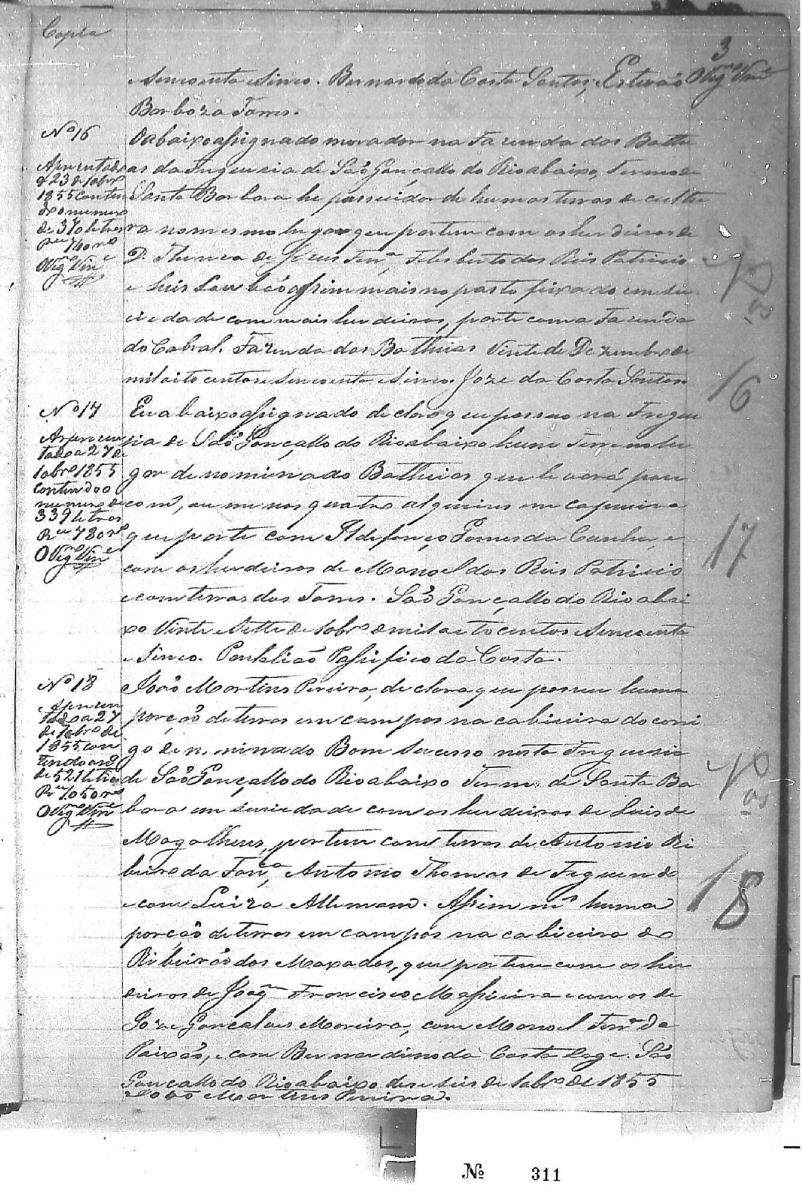 Copia
3
Sincoenta e Sinco. Bernardo da Costa Santos, Estevão
Barboza Torres.
Nº 16
Apresentado
a 23 de 10brº
1855 conten
do o numero
de 370 letras
O Vigrº Vin
O abaixo assignado morador na Fazenda das Bathe
as da Freguesia de São Gonçallo do Rio abaixo, Termo de
Santa Barbara he possuidor de humas terras de cultu
ra no mesmo lugar que partem com os herdeiros de
D. Thereza de Jezus Ferrª, Felisberto dos Reis Patricio
e Luis assim mais no pasto fixado em so
ciedade com mais herdeiros, parte com a Fazenda
do Cabral. Fazenda das Batheias Vinte de Dezembro de
mil oito centos e sincoenta e sinco. Joze da Costa Santos
16
Nº 17
Aprezen
tado a 27 de
10brº 1855
contendo o
numero de
339 letras
O Vigrº Vin
Eu abaixo assignado declaro que possuo na Fregue
zia de São Gonçallo do Rio abaixo hum Terreno lu
gar denominado Batheias que levará pou
co mº, ou menos quatro alqueires em capueira
que parte com Ildefonço Gomes da Cunha, e
com os herdeiros de Manoel dos Reis Patricio
e com terras dos Torres. São Gonçallo do Rio abai
xo Vinte e Sette de 10brº de mil oito centos e Sincoenta
e Sinco. Pacifico da Costa.
17
Nº 18
Aprezen
tado a 27
de 10brº de
1855 con
tendo o nº
de 521 letras
O Vigrº Vin
João Martins Pereira, declara que possue huma
porção de terras em campos na cabiceira do corri
go denominado Bom Sucesso nesta Freguesia
de São Gonçallo do Rio abaixo Termo de Santa Bar
bara em sociedade com os herdeiros de Luis de
Magalhens, partem com terras de Antonio Ri
beiro da Fonª, Antonio Thomas de Figueredo
e com Luiza Allemam. Assim mº huma
porção de terras em campos na cabiceira do
Ribeirão dos Maxados, que partem com os her
deiros de Joaqm Francisco Massieira e com os de
Joze Goncalves Moreira, com Manoel Ferrª da
Paixão, e com Bernardino da Costa Lage. São
Gonçallo do Rio abaixo deseseis de 10brº de 1855
João Martins Pereira.
18
Nº 311